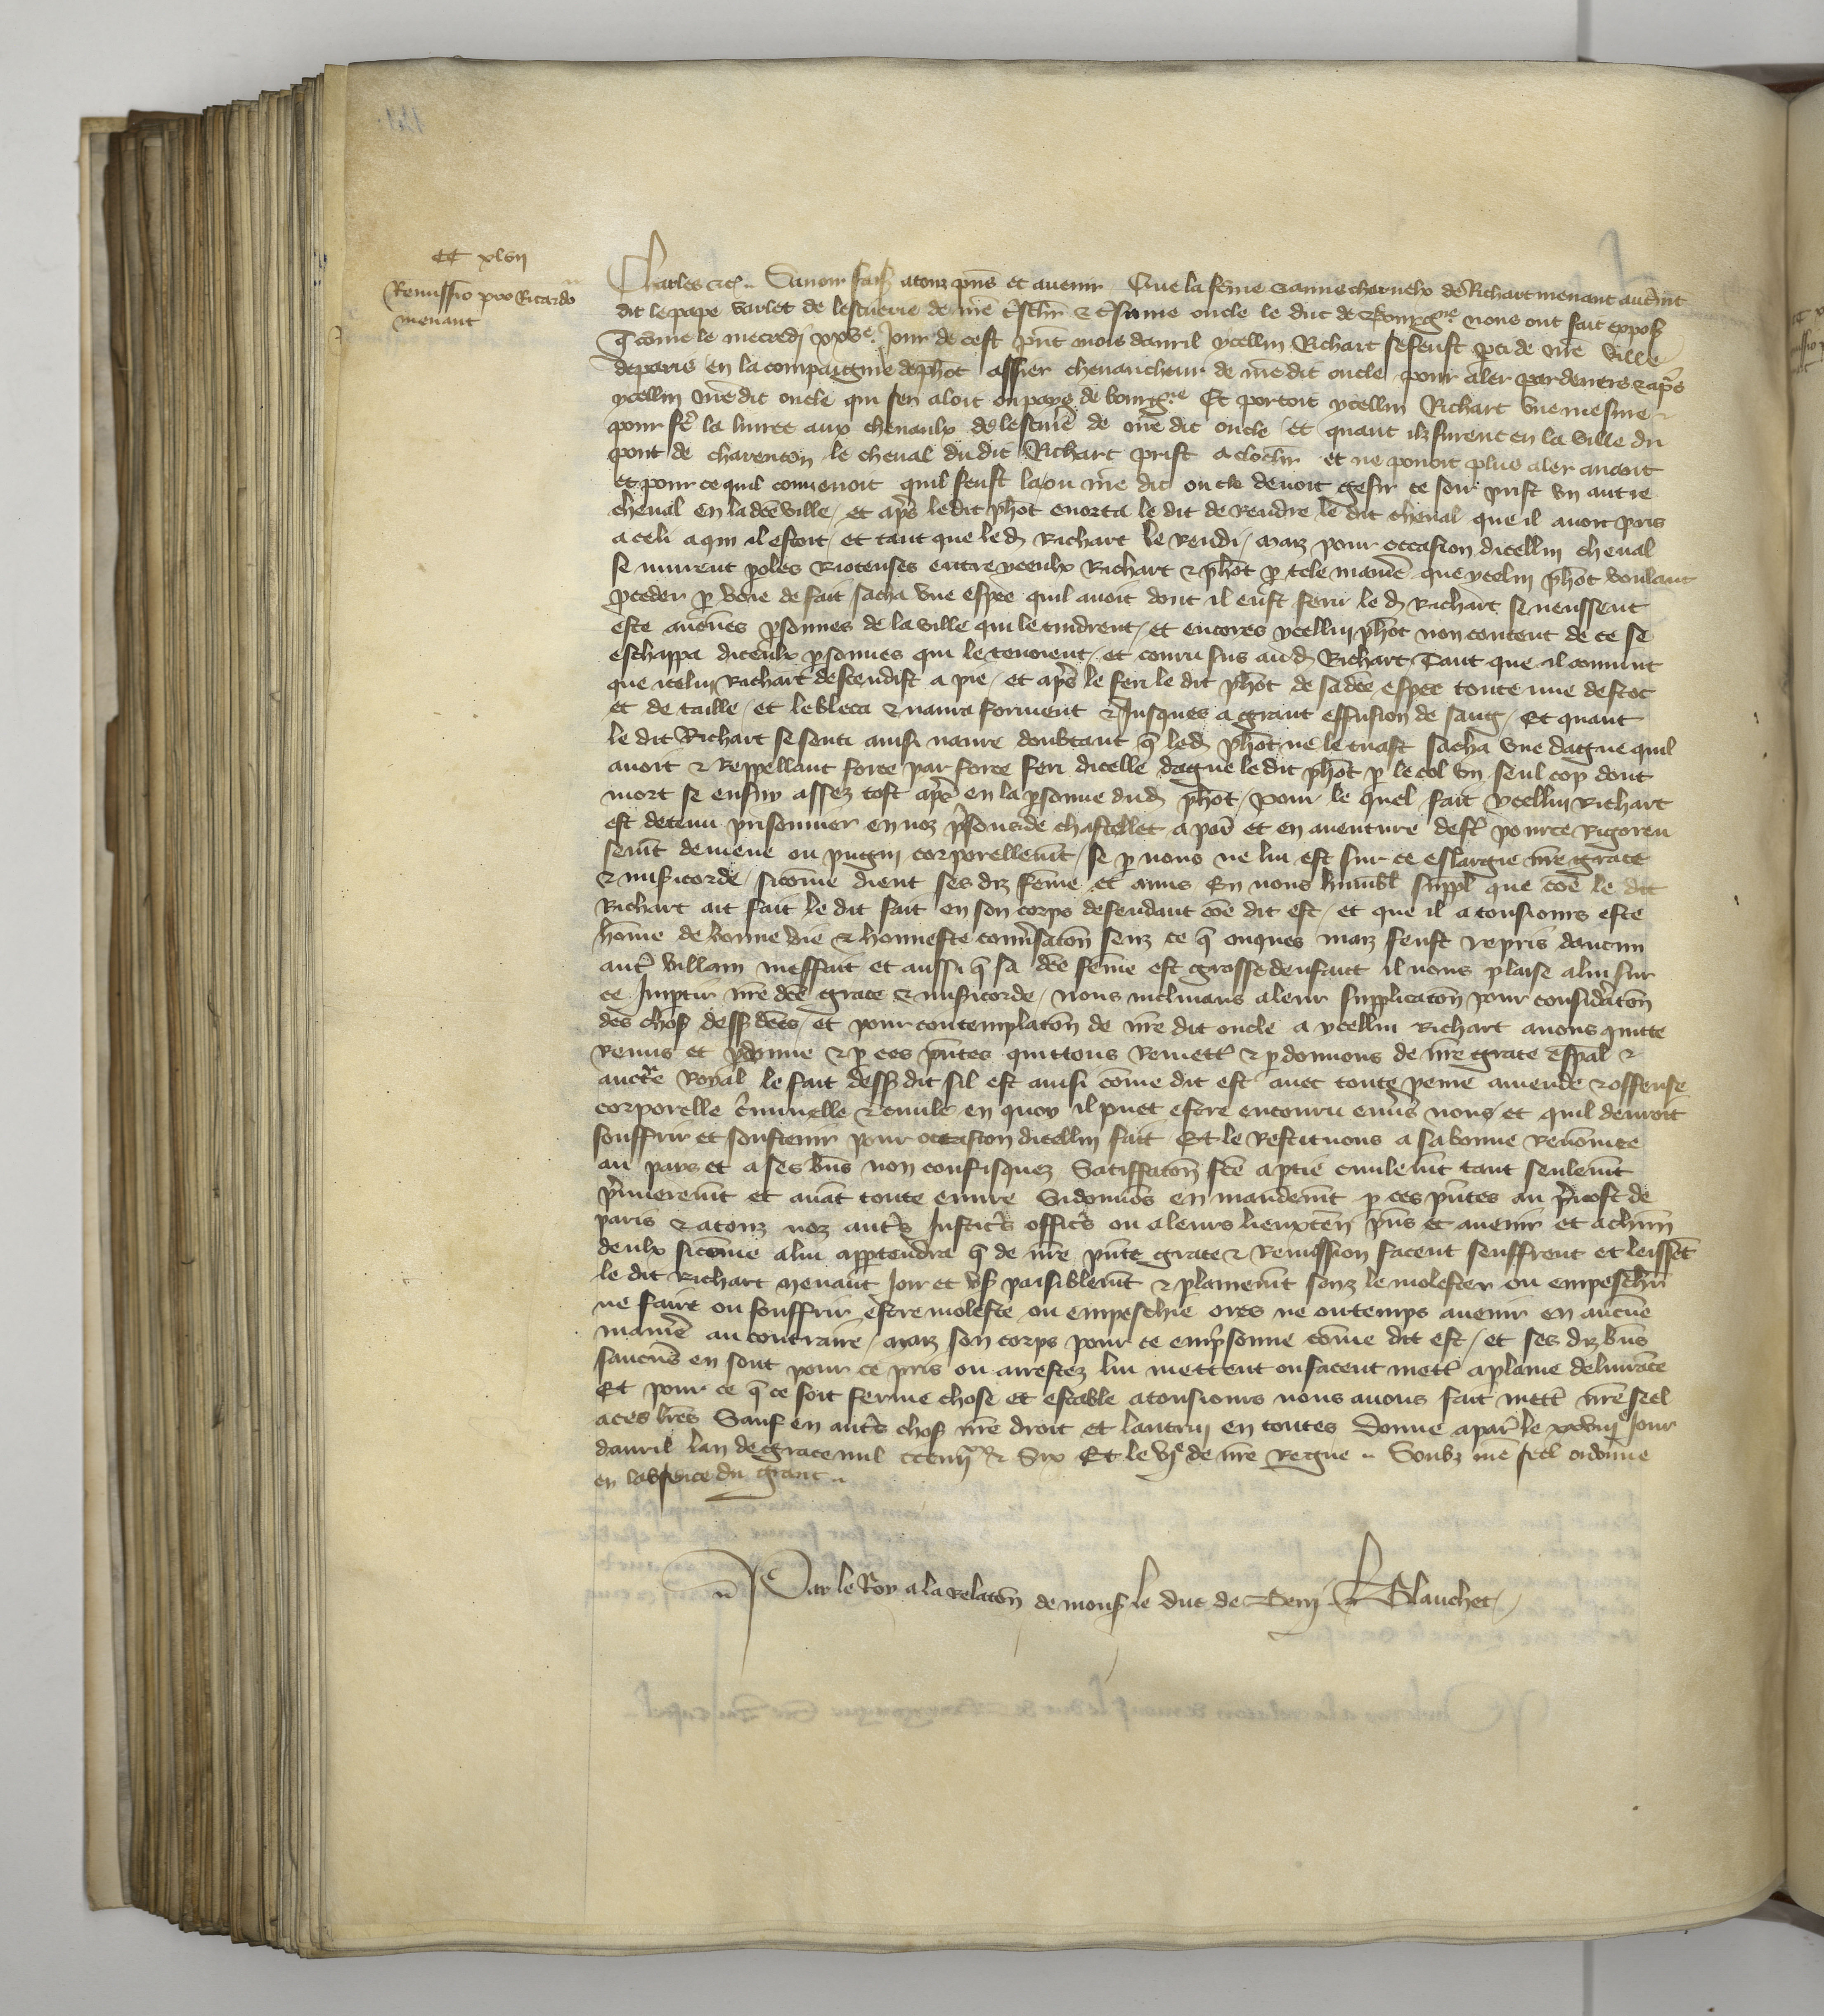 CC xlvii
Remissio pro Ricardo
menant
Charles &c. Savoir fais a touz pñs et avenir Que la fẽme & amis charnelx de Richart menant autrẽnt
dit le pape varlet de lescuerie de nrẽ trẽschr & trẽsame oncle le duc de Bourgne nous ont fait exposˀ
q cõme le mecredi xxve Jour de cest pñt mois davril ycellui Richart se feust pti de nrẽ ville
de paris en la compaignie de phõt assier chevaucheur de nrẽ dit oncle pour aler par devers & apˢ
ycellui nrẽ dit oncle qui sen aloit ou pays de bourgne Et portoit ycellui Richart une mesure
pour fẽ la livree aux chevaulx de lescuiẽ de nrẽ dit oncle et quant ilz furent en la ville du
pont de charenton le cheval dudit Richart prist a clochir et ne povoit plus aler avant
et pour ce quil convenoit quil feust la ou nrẽ dit oncle devoit gesir ce soir prist un autre
cheval en lad̃ce ville / et apˢ ledit phõt enorta le dit de rendre le dit cheval que il avoit pris
a celi a qui il estoit / et tant que led Richart le rendi / maiz pour occasion dicellui cheval
se murent poles Rioteuses entre yceulx Richart & phõt p tele maniẽ que ycelui phõt voulant
pceder p voie de fait sacha une espee quil avoit dont il eust feru le d Richart se neussent
este aucunes psonnes de la ville qui le tindrent / et encores ycellui phõt non content de ce se
eschappa diceulx psonnes qui le tenoient / et couru sus aud Richart Tant que il convint
que icelui Richart descendist a pie / et apˢ le feri le dit phõt de sad̃ce espee toute nue destoc
et de taille / et le bleca & navra forment & Jusques a grant effusion de sang / Et quant
le dit Richart se senti ainsi navre doubtant q̃ led phõt ne le tuast sacha une dague quil
avoit & Reppellant force par force feri dicelle dague ledit phõt p le col un seul cop dont
mort se ensuy assez tost apˢ en la psonne dud phõt / pour le quel fait ycellui Richart
est detenu prisonnier en noz pˢons de chastellet a paˢ et en aventure destˢ pour ce Rigoreu
semt demene ou pugni corporellemt / se p nous ne lui est sur ce eslargie nrẽ grace
& misicorde / sicõme dient ses diz fẽme et amis En nous humblˢ supplˢ que cõe le dit
Richart ait fait le dit fait en son corps defendant cõe dit est / et que il a tousiours este
hõme de bonne vie & honneste convˢsatõn senz ce q̃ onques maiz feust repris daucun
autˢ villain meffait et aussi q̃ sa d̃ce fẽme est grosse denfant il nous plaise a lui sur
ce Impˢtir nrẽ d̃ce grace & misicorde / nous inclinans a leur supplicatõn pour considˢatõn
des chosˢ dessˢ d̃ces / et pour contemplatõn de nrẽ dit oncle a ycellui Richart avons quitte
remis et pdonne & p ces pñtes quittons remettˢ & pdonnons de nrẽ grace espãl &
auctˢe Royal le fait dessˢ dit sil est ainsi cõme dit est avec toute peine amende & offense
corporelle cˢiminelle & civile en quoy il puet estre encouru envˢs nous et quil devroit
souffrir et soustenir pour occasion dicellui fait Et le Restituons a sa bonne renõmee
au pays et a ses bñs non confisquez Satiffatõn fcẽ a ptie civilemt tant seulemt
pˢmieremt et avãt toute euvre Si donnõs en mandemt p ces pñtes au pˢvost de
paris & a touz noz autˢs Justicˢs officˢs ou a leurs lieuxteñ pñs et avenir et a chũn
deulx sicõme a lui appˢtendra q̃ de nrẽ pñte grace & Remission facent seuffrent et leissẽt
le dit Richart menant Joir et usˢ paisiblemt & plainemt sanz le molester ou empeschiˢ
ne faire ou souffrir estre moleste ou empeschie ores ne ou temps avenir en aucũe
maniẽ au contraire / maiz son corps pour ce empˢsonne cõme dit est / et ses diz bñs
saucũs en sont pour ce pris ou arrestez lui mettent ou facent mettˢ a plaine delivrãce
Et pour ce q̃ ce soit ferme chose et estable a tousiours nous avons fait mettˢ nrẽ seel
a ces lrẽs Sauf en autˢs chosˢ nrẽ droit et lautruy en toutes Donne a parˢ le xxviije Jour
davril lan de grace mil ccciiijxx & Six Et le vje de nrẽ Regne .. Soubz nrẽ seel ordonne
en labsence du grant ..
Par le Roy a la relatõn de monsˢ le duc de Berry .. Blanchet